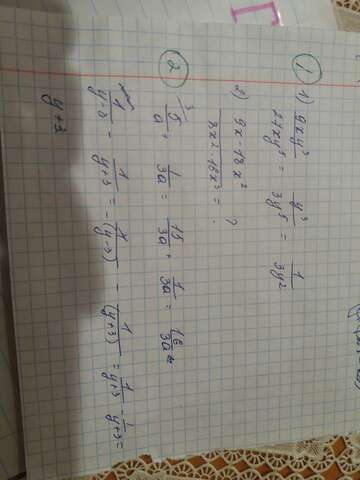 ①
1) 9xy³/27xy⁵ = y³/3y⁵ = 1/3y²
2) 9x-18x²/8x²-16x³ = ?
②
5/a + 1/3a = 15/3a + 1/3a = 16/3a
1/y-3 - 1/y+3 = -1/(y-3) - 1/(y+3) = 1/y+3 - 1/y+3 =
y+3